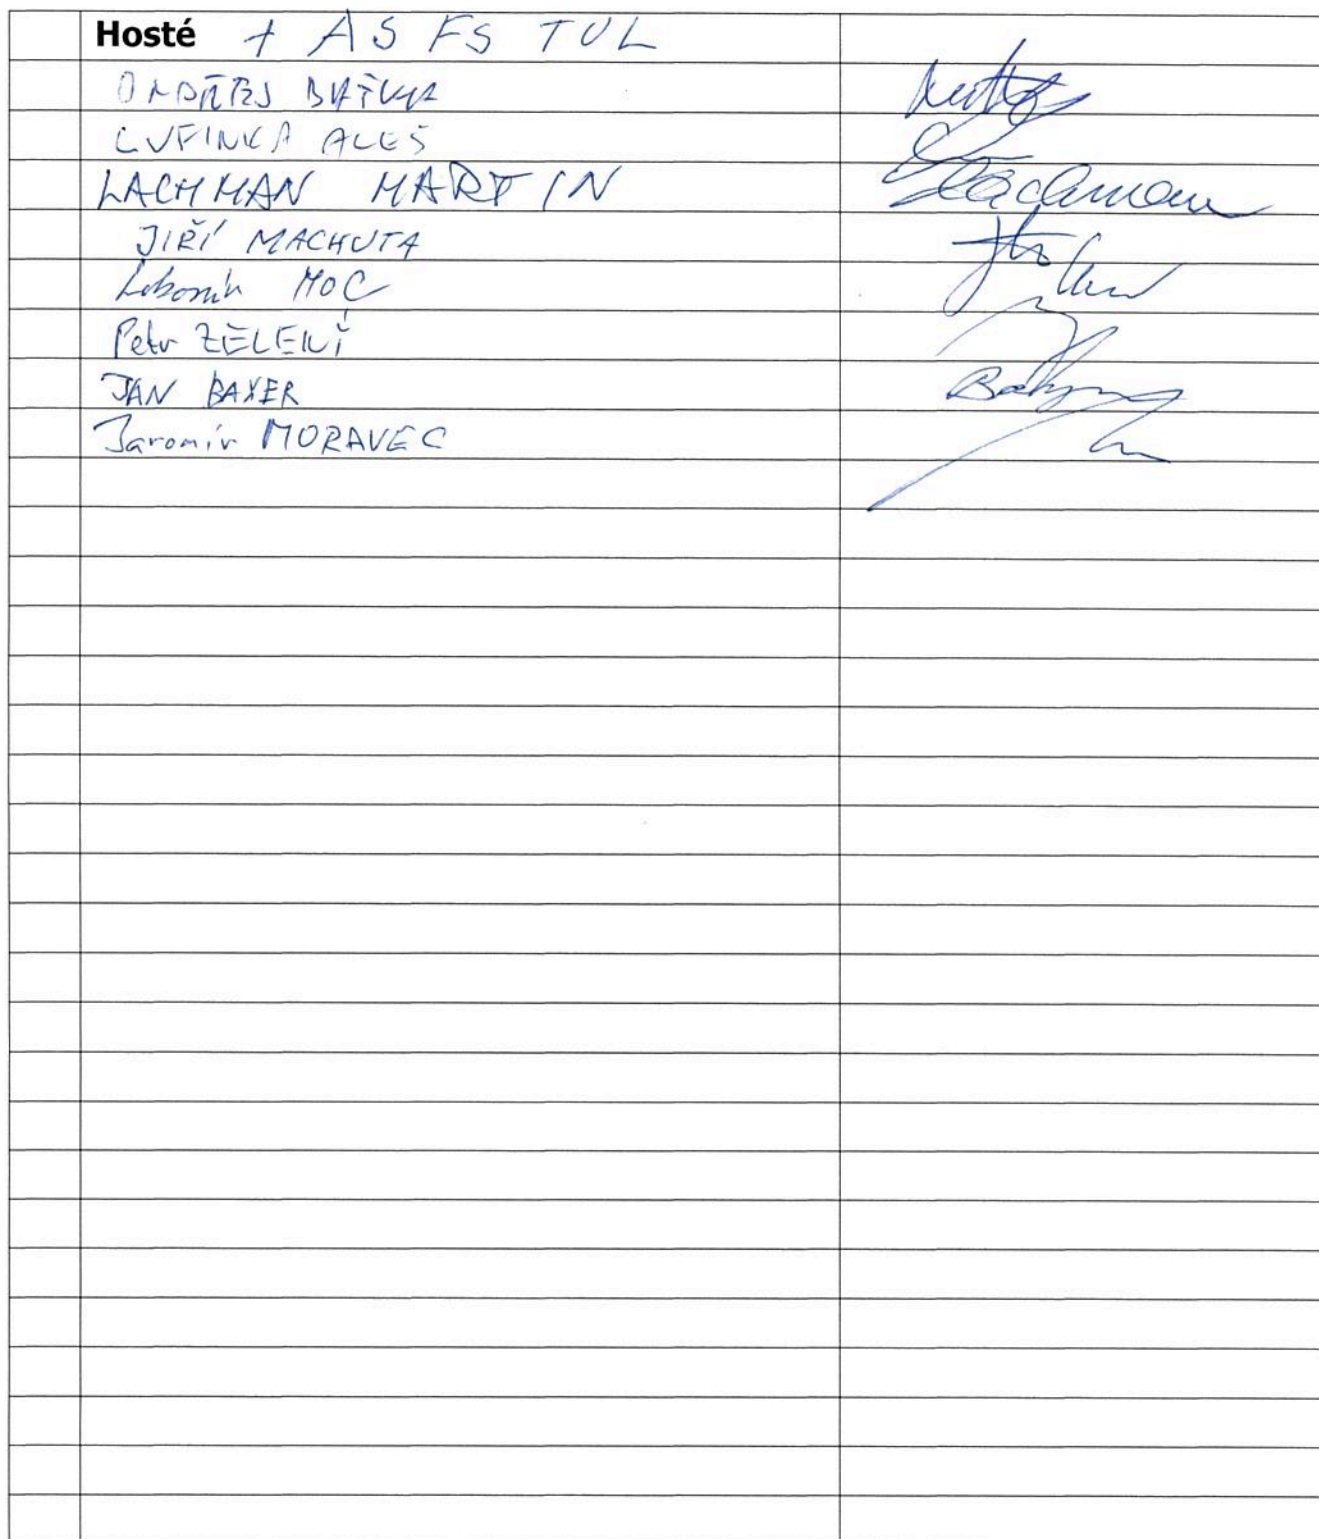 Hosté + AS FS TUL
ONDŘEJ BAŤKA
LUFINKA ALEŠ
LACHMAN MARTIN
Lachman
JIŘÍ MACHUTA
Lubomír MOC
Petr ZELENÝ
JAN BAXER
Jaromír MORAVEC